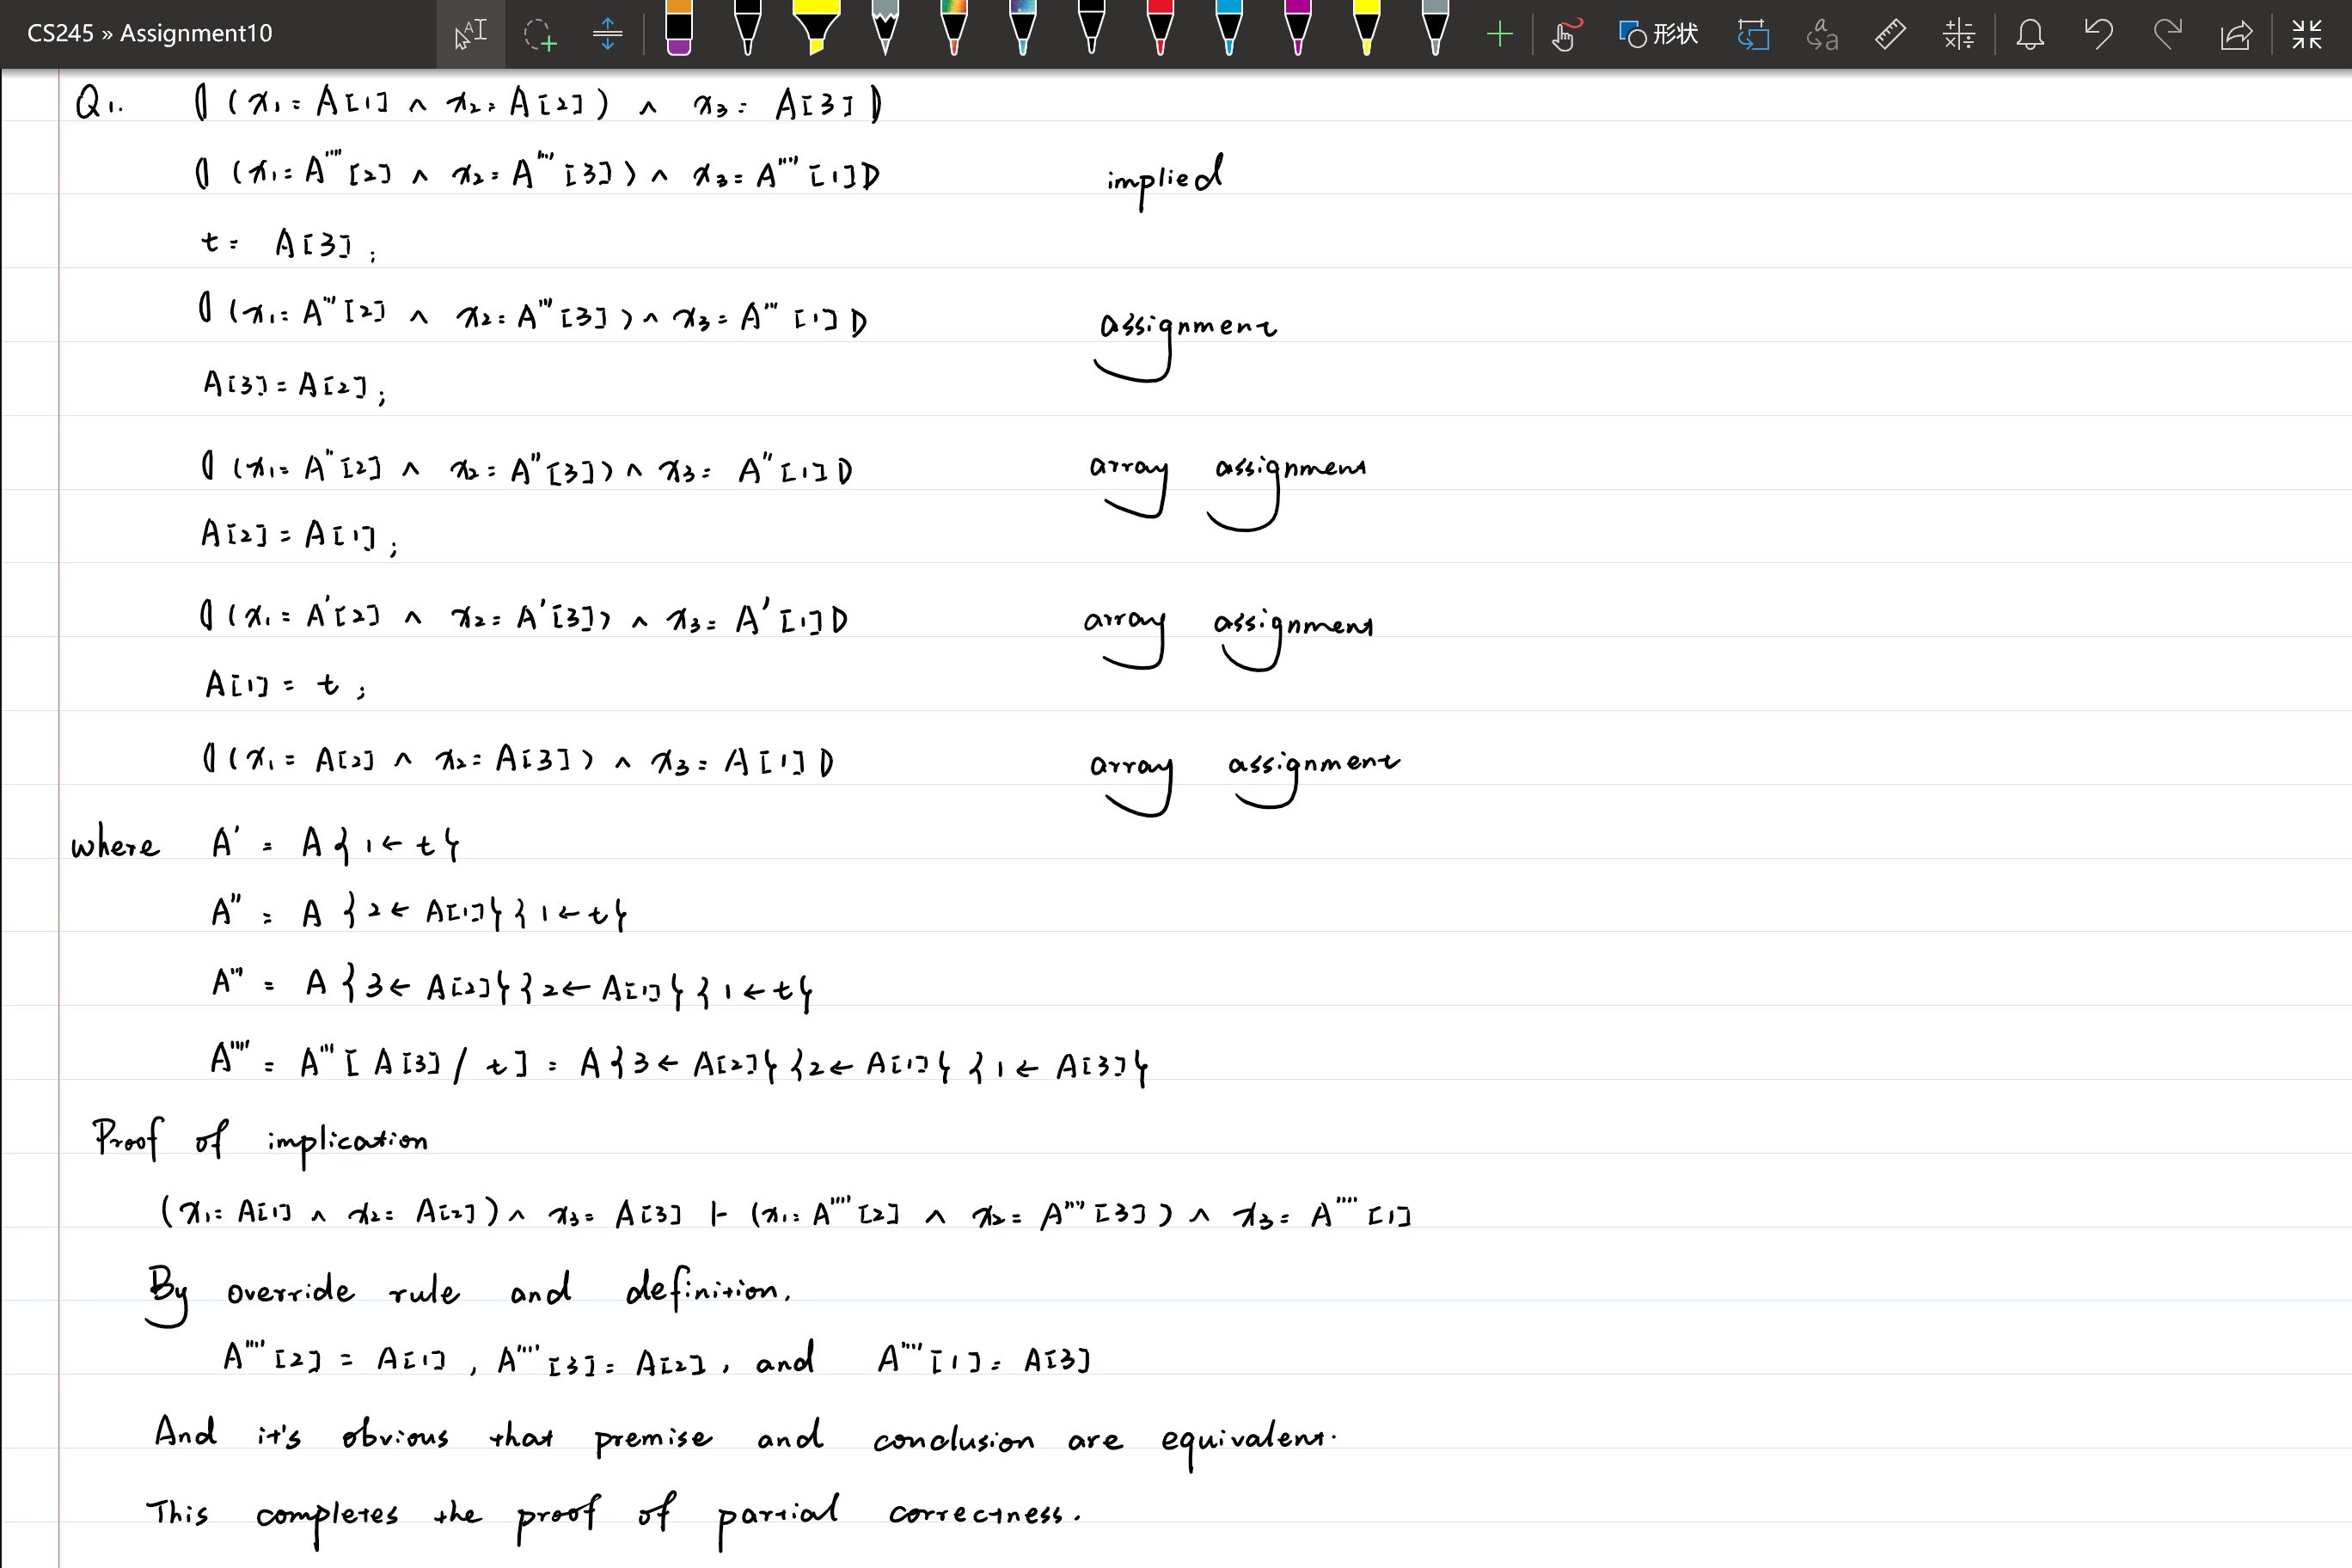 CS245 » Assignment10
形状
Q1. ⦇(x₁ = A[1] ∧ x₂ = A[2]) ∧ x₃ = A[3]⦈
⦇(x₁ = A''''[2] ∧ x₂ = A''''[3]) ∧ x₃ = A''''[1]⦈ implied
t = A[3];
⦇(x₁ = A'''[2] ∧ x₂ = A'''[3]) ∧ x₃ = A'''[1]⦈ assignment
A[3] = A[2];
⦇(x₁ = A''[2] ∧ x₂ = A''[3]) ∧ x₃ = A''[1]⦈ array assignment
A[2] = A[1];
⦇(x₁ = A'[2] ∧ x₂ = A'[3]) ∧ x₃ = A'[1]⦈ array assignment
A[1] = t;
⦇(x₁ = A[2] ∧ x₂ = A[3]) ∧ x₃ = A[1]⦈ array assignment
where A' = A{1 ← t}
A'' = A{2 ← A[1]}{1 ← t}
A''' = A{3 ← A[2]}{2 ← A[1]}{1 ← t}
A'''' = A'''[A[3] / t] = A{3 ← A[2]}{2 ← A[1]}{1 ← A[3]}
Proof of implication
(x₁ = A[1] ∧ x₂ = A[2]) ∧ x₃ = A[3] ⊢ (x₁ = A''''[2] ∧ x₂ = A''''[3]) ∧ x₃ = A''''[1]
By override rule and definition.
A''''[2] = A[1], A''''[3] = A[2], and A''''[1] = A[3]
And it's obvious that premise and conclusion are equivalent.
This completes the proof of partial correctness.